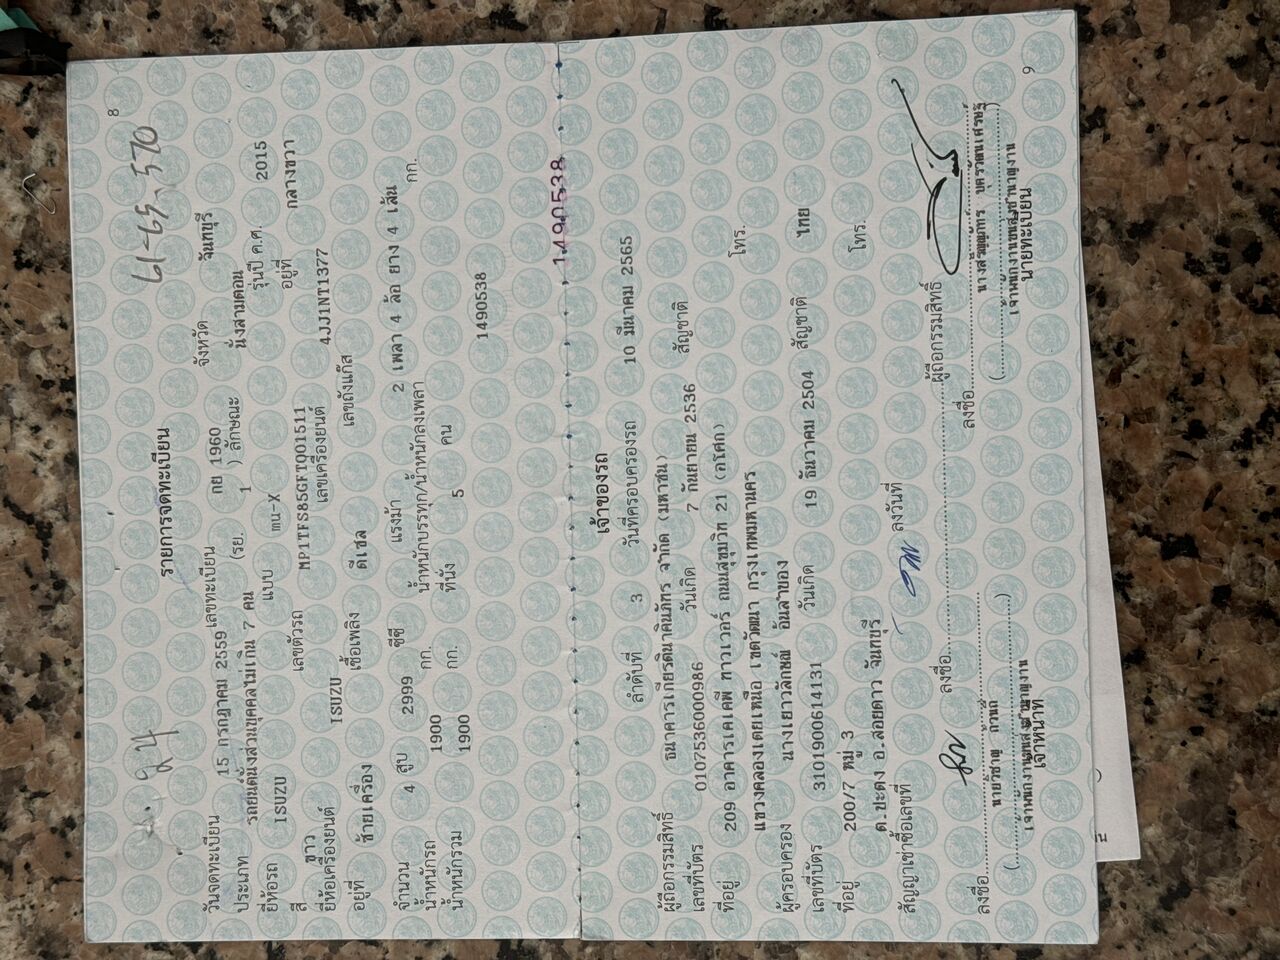 8
24 61-65,570
รายการจดทะเบียน
วันจดทะเบียน 15 กรกฎาคม 2559 เลขทะเบียน กย 1960 จังหวัด จันทบุรี
ประเภท รถยนต์นั่งส่วนบุคคลไม่เกิน 7 คน (รย. 1 ) ลักษณะ นั่งสามตอน
ยี่ห้อรถ ISUZU แบบ mu-X รุ่นปี ค.ศ. 2015
สี ขาว เลขตัวรถ MP1TFS85GFT001511 อยู่ที่ กลางขวา
ยี่ห้อเครื่องยนต์ ISUZU เลขเครื่องยนต์ 4JJ1NT1377
อยู่ที่ ซ้ายเครื่อง เชื้อเพลิง ดีเซล เลขถังแก๊ส
จำนวน 4 สูบ 2999 ซีซี แรงม้า 2 เพลา 4 ล้อ ยาง 4 เส้น
น้ำหนักรถ 1900 กก. น้ำหนักบรรทุก/น้ำหนักลงเพลา กก.
น้ำหนักรวม 1900 กก. ที่นั่ง 5 คน
1490538
1490538
เจ้าของรถ
ลำดับที่ 3 วันที่ครอบครองรถ 10 มีนาคม 2565
ผู้ถือกรรมสิทธิ์ ธนาคารเกียรตินาคินภัทร จำกัด (มหาชน)
เลขที่บัตร 0107536000986 วันเกิด 7 กันยายน 2536 สัญชาติ
ที่อยู่ 209 อาคารเคเคพี ทาวเวอร์ ถนนสุขุมวิท 21 (อโศก)
แขวงคลองเตยเหนือ เขตวัฒนา กรุงเทพมหานคร โทร.
ผู้ครอบครอง นางเยาวลักษณ์ อ้นลำของ
เลขที่บัตร 3101900614131 วันเกิด 19 ธันวาคม 2504 สัญชาติ ไทย
ที่อยู่ 200/7 หมู่ 3
ต.ปะตง อ.สอยดาว จันทบุรี โทร.
สัญญาเช่าซื้อเลขที่ ลงวันที่
ลงชื่อ ผู้ถือกรรมสิทธิ์
ลงชื่อ ลงชื่อ
เจ้าพนักงานขนส่งชำนาญงาน เจ้าพนักงานขนส่งชำนาญงาน
เจ้าหน้าที่ นายทะเบียน
9